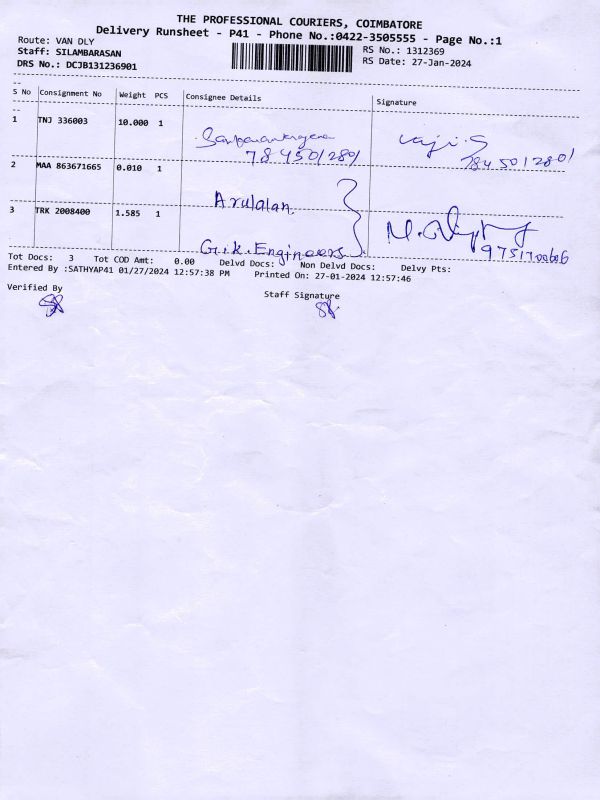 THE PROFESSIONAL COURIERS, COIMBATORE
Delivery Runsheet - P41 - Phone No.:0422-3505555 - Page No.:1
Route: VAN DLY
RS No.: 1312369
Staff: SILAMBARASAN
RS Date: 27-Jan-2024
DRS No.: DCJB131236901
S No Consignment No Weight PCS Consignee Details Signature
1 TNJ 336003 10.000 1
7845012801 7845012801
2 MAA 863671665 0.010 1
Arulalan
3 TRK 2008400 1.585 1
G.K. Engineers 9751700606
Tot Docs: 3 Tot COD Amt: 0.00 Delvd Docs: Non Delvd Docs: Delvy Pts:
Entered By :SATHYAP41 01/27/2024 12:57:38 PM Printed On: 27-01-2024 12:57:46
Verified By
Staff Signature